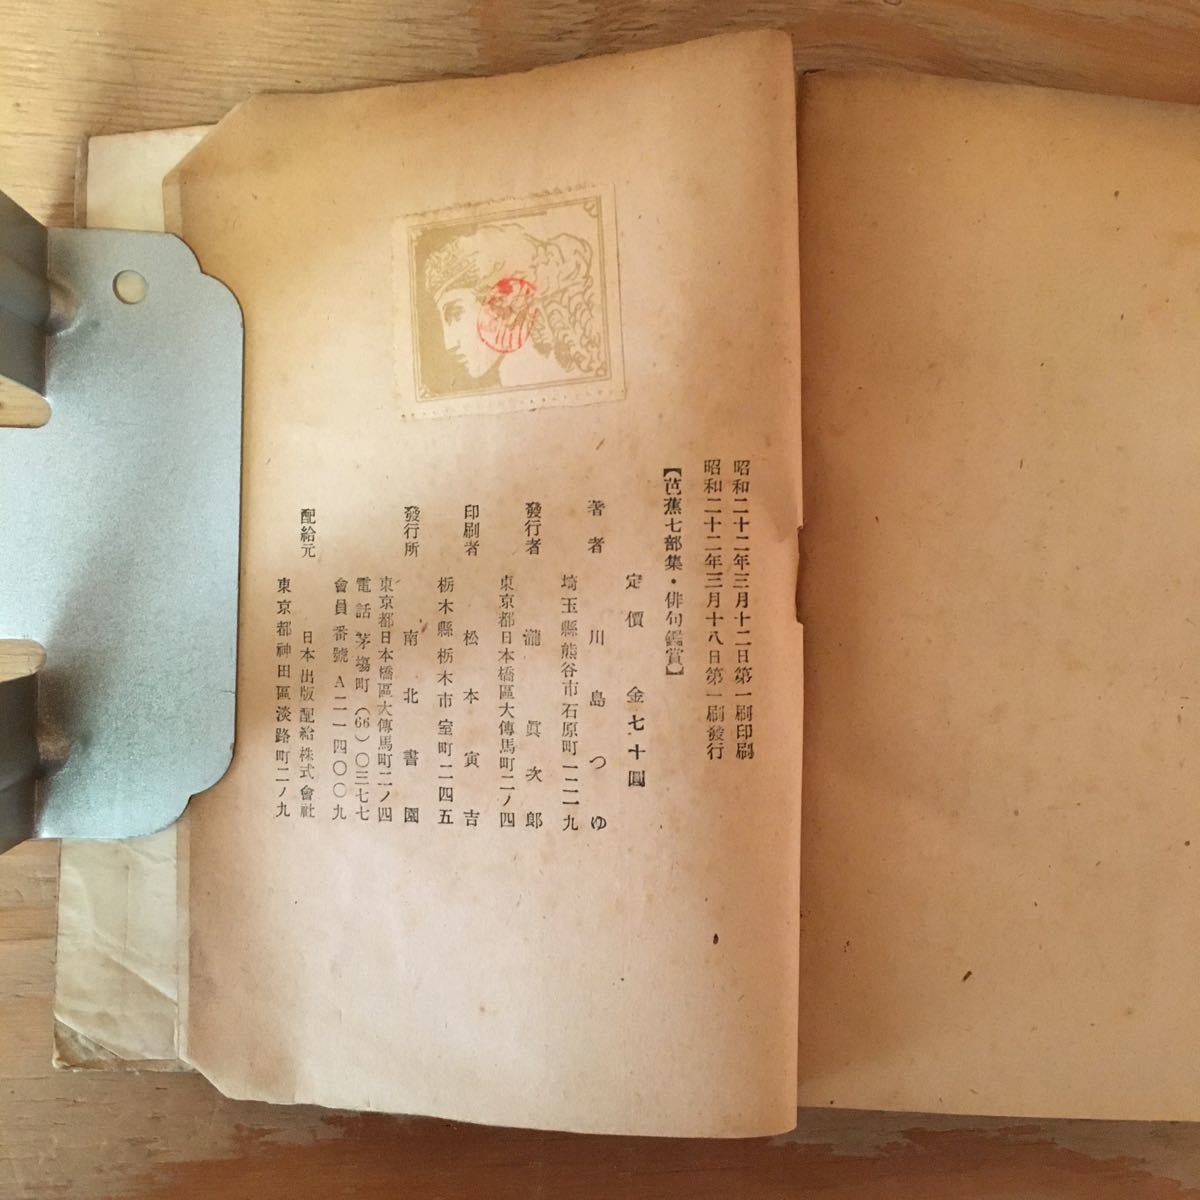 昭和二十二年三月十二日第一刷印刷
昭和二十二年三月十八日第一刷發行
【芭蕉七部集・俳句鑑賞】
定價金七十圓
著者 川島つゆ
埼玉縣熊谷市石原町一二一九
發行者 瀧眞次郎
東京都日本橋區大傳馬町二ノ四
印刷者 松本寅吉
栃木縣栃木市室町二四五
發行所 南北書園
東京都日本橋區大傳馬町二ノ四
電話茅場町(66)〇三七七
會員番號A二一四〇〇九
配給元 日本出版配給株式會社
東京都神田區淡路町二ノ九